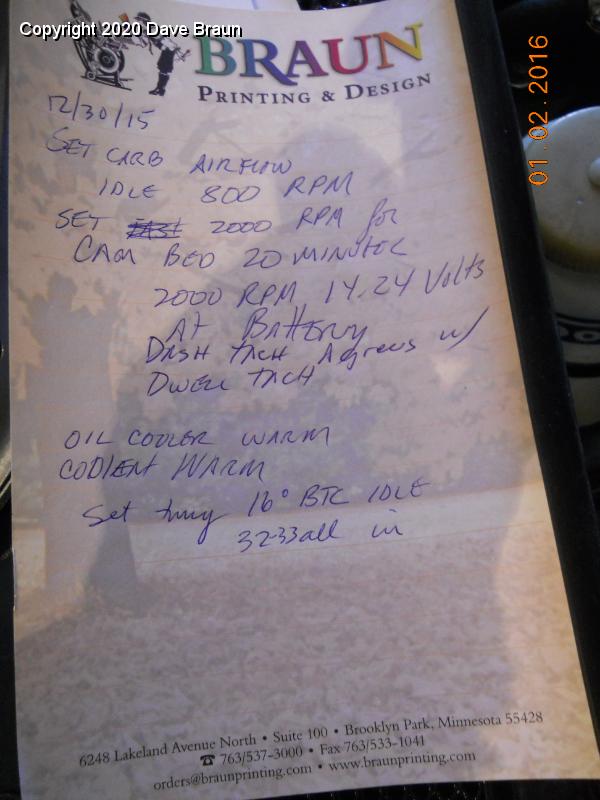 Copyright 2020 Dave Braun
BRAUN
PRINTING & DESIGN
01.02.2016
12/30/15
SET CARB AIRFLOW
IDLE 800 RPM
SET FAST 2000 RPM for
CAM BED 20 MINUTES
2000 RPM 14.24 Volts
At BAttery
DASH TACH Agrees w/
DWELL TACH
OIL COOLER WARM
COOLENT WARM
Set timing 16° BTC IDLE
32-33 all in
6248 Lakeland Avenue North • Suite 100 • Brooklyn Park, Minnesota 55428
☎ 763/537-3000 • Fax 763/533-1041
orders@braunprinting.com • www.braunprinting.com